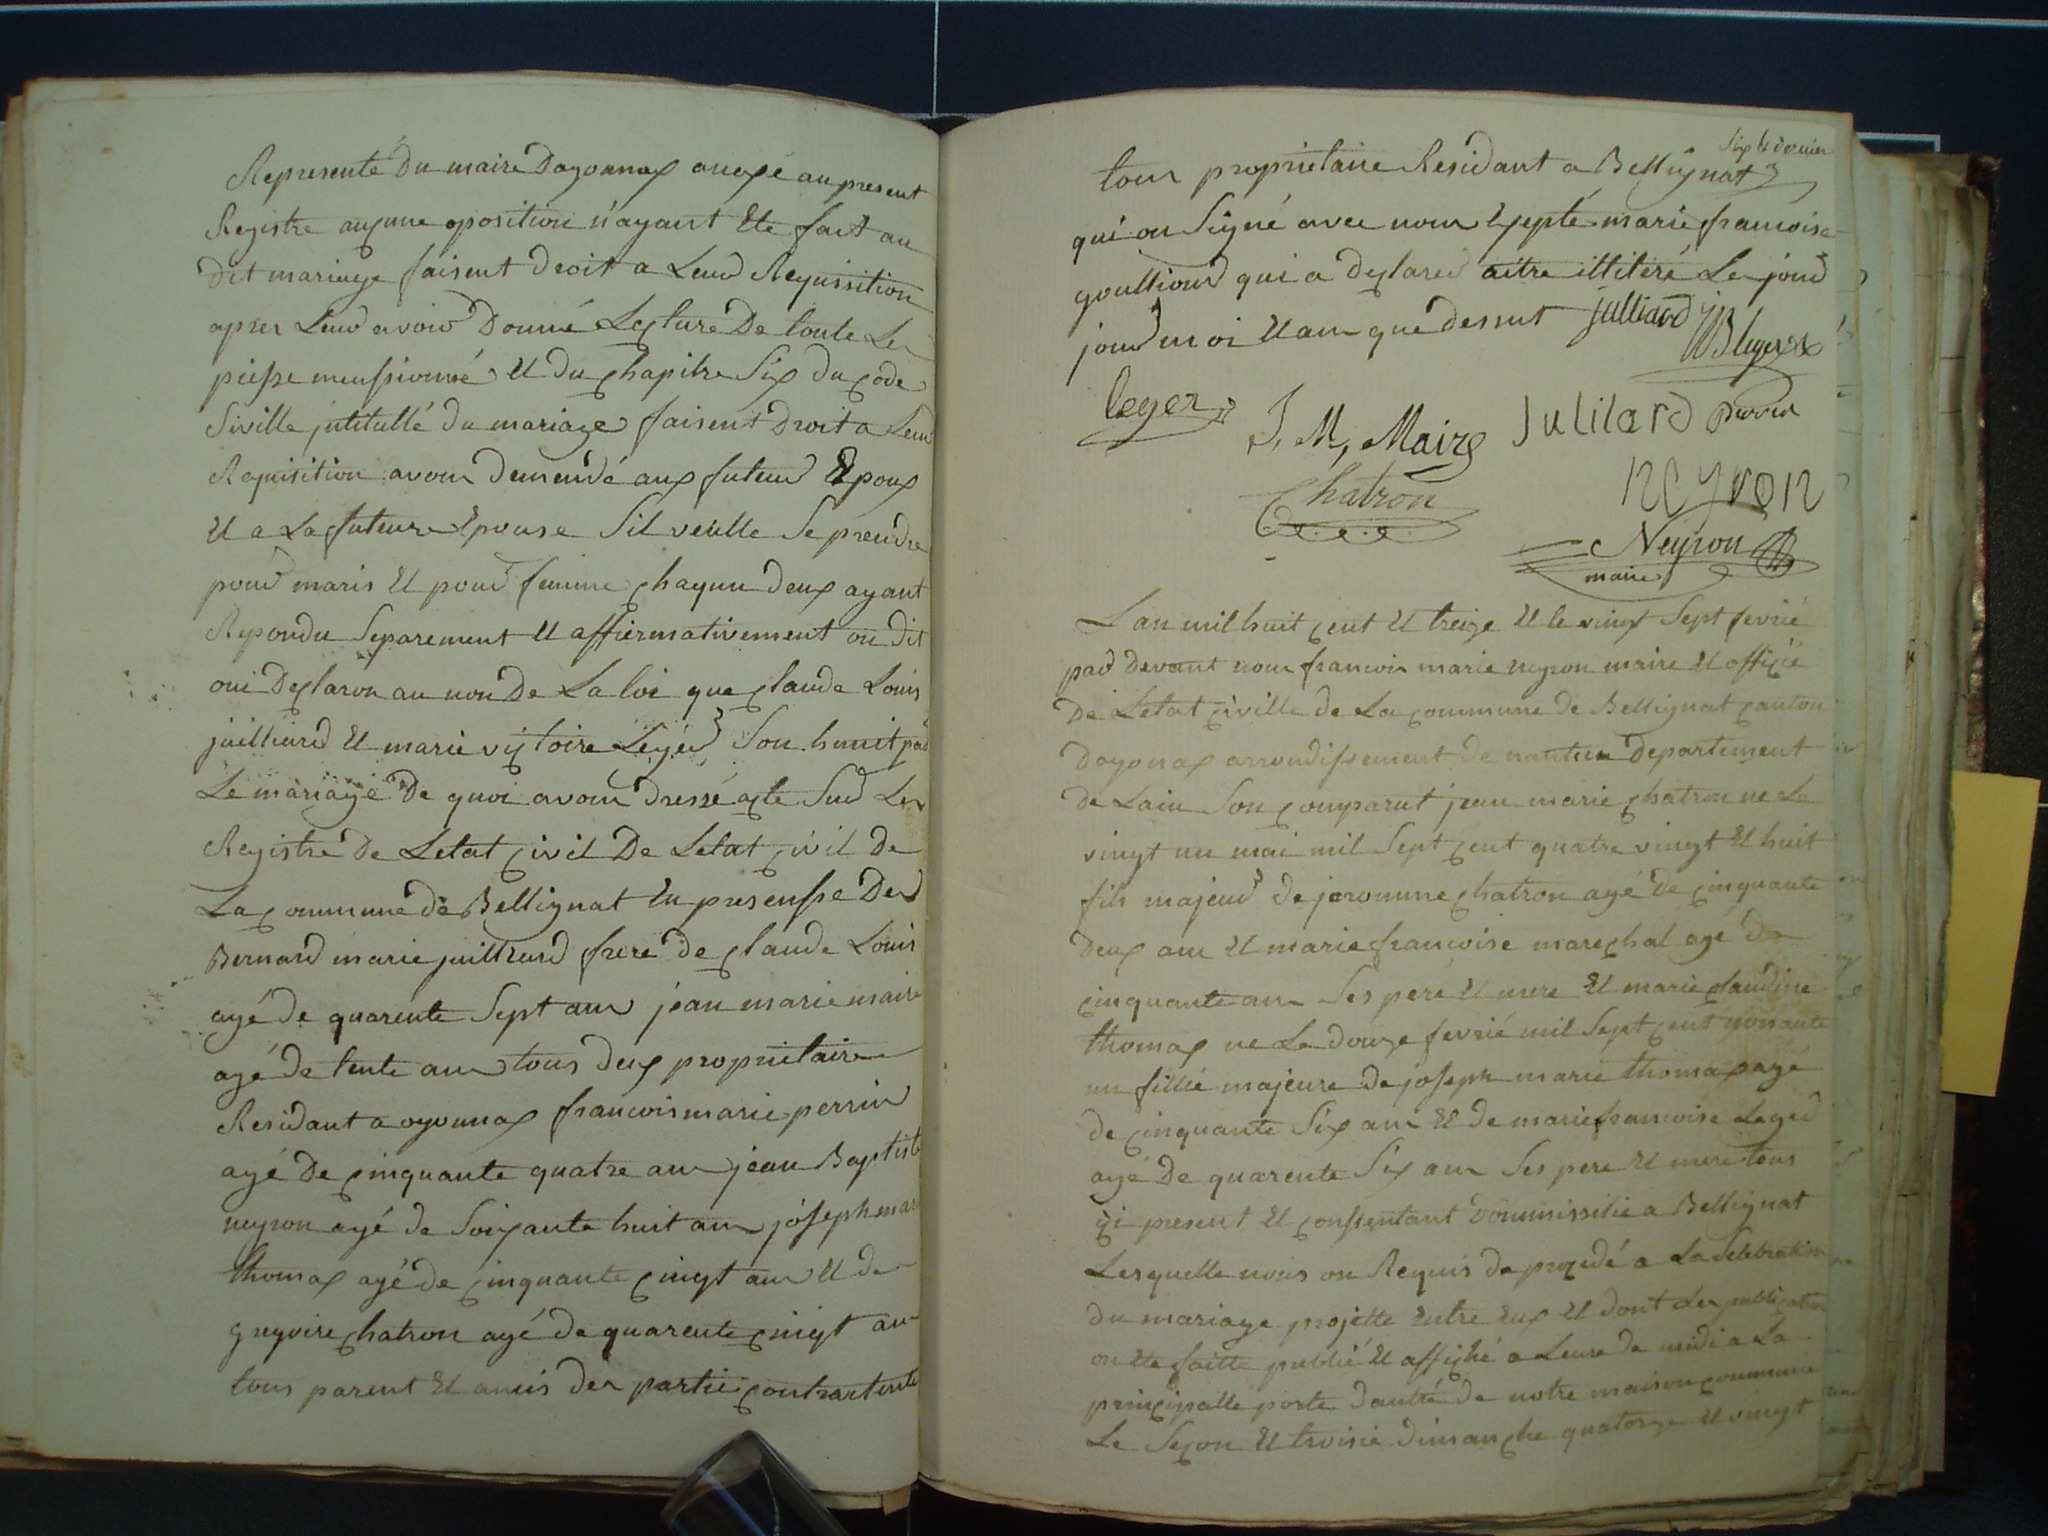 Representé Du maire Doyonnax anexé au present
Registre auqune oposition n'ayant Eté fait au
dit mariage faisent droit a Leur Requisition
apres Leur avoir Donné Lecture De toute Les
piesse mensionné et du chapitre Six du code
Siville intitullé du mariage faisent Droit a Leur
Requisition avons demendé aux futeur Epoux
et a La futeure Epouse S'il veulle Se prendre
pour maris et pour femme chaqun deux ayant
Repondu Separement et affiermativement on dit
oui Declaron au non De La loi que claude Louis
juilliard et marie victoire Leger Son hunit par
Le mariage De quoi avons dressé acte Sur Les
Registre de Letat civil De Letat civil de
La commune de Bellignat En presensse Des
Bernard marie juilliard frere de claude Louis
agé de quarente Sept ans jean marie maire
agé de tente ans tous deux proprietaire
Residant a oyonnax francois marie perrin
agé De cinquante quatre ans jean Baptiste
neyron agé de Soixante huit ans joseph marie
thomas agé de cinquante cinqt ans et de
gregoire chatron agé de quarente cinqt ans
tous parent et amis des partie contractente
Six le dernier
tous proprietaire Residant a Bellignat
qui on Signé avec nous Exepté marie francoise
goultiour qui a declarer aitre illiteré Le jour
jour moi et ans que dessus julliard JB leger
leger J, M, Maire Jullard perrin
Chatron neyron
Neyron
maire
Lan mil huit cent et treize et le vingt Sept fevrié
par devant nous francois marie neyron maire et officié
De Letat civille de La commune de Bellignat canton
Doyonax arrondissement de nantua Departement
de Lain Son comparut jean marie chatron ne Le
vingt un mai mil Sept cent quatre vingt et huit
fils majeur de jeromme chatron agé de cinquante
deux ans et marie francoise marechal agé de
cinquante ans Ses pere et mere et marie claudine
thomas ne Le douze fevrié mil Sept cent nonante
un fillie majeure de joseph marie thomas agé
de cinquante Six ans et de marie francoise Leger
agé De quarente Six ans Ses pere et mere tous
çi present et conssentant dommissilié a Bellignat
Lesquelle nous on Requis de procedé a La Selebration
du mariage projetté Entre Eux et dont Les publication
on Eté faitte publié et affiché a Leure de midi a La
principalle porte dantré de notre maison commune
Le Secon et troisié dimanche quatorze et vingt